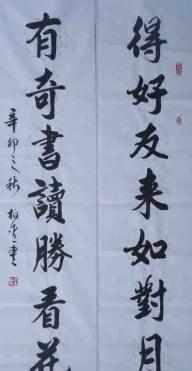 得好友来如對月
有奇書讀勝看花
辛卯之秋